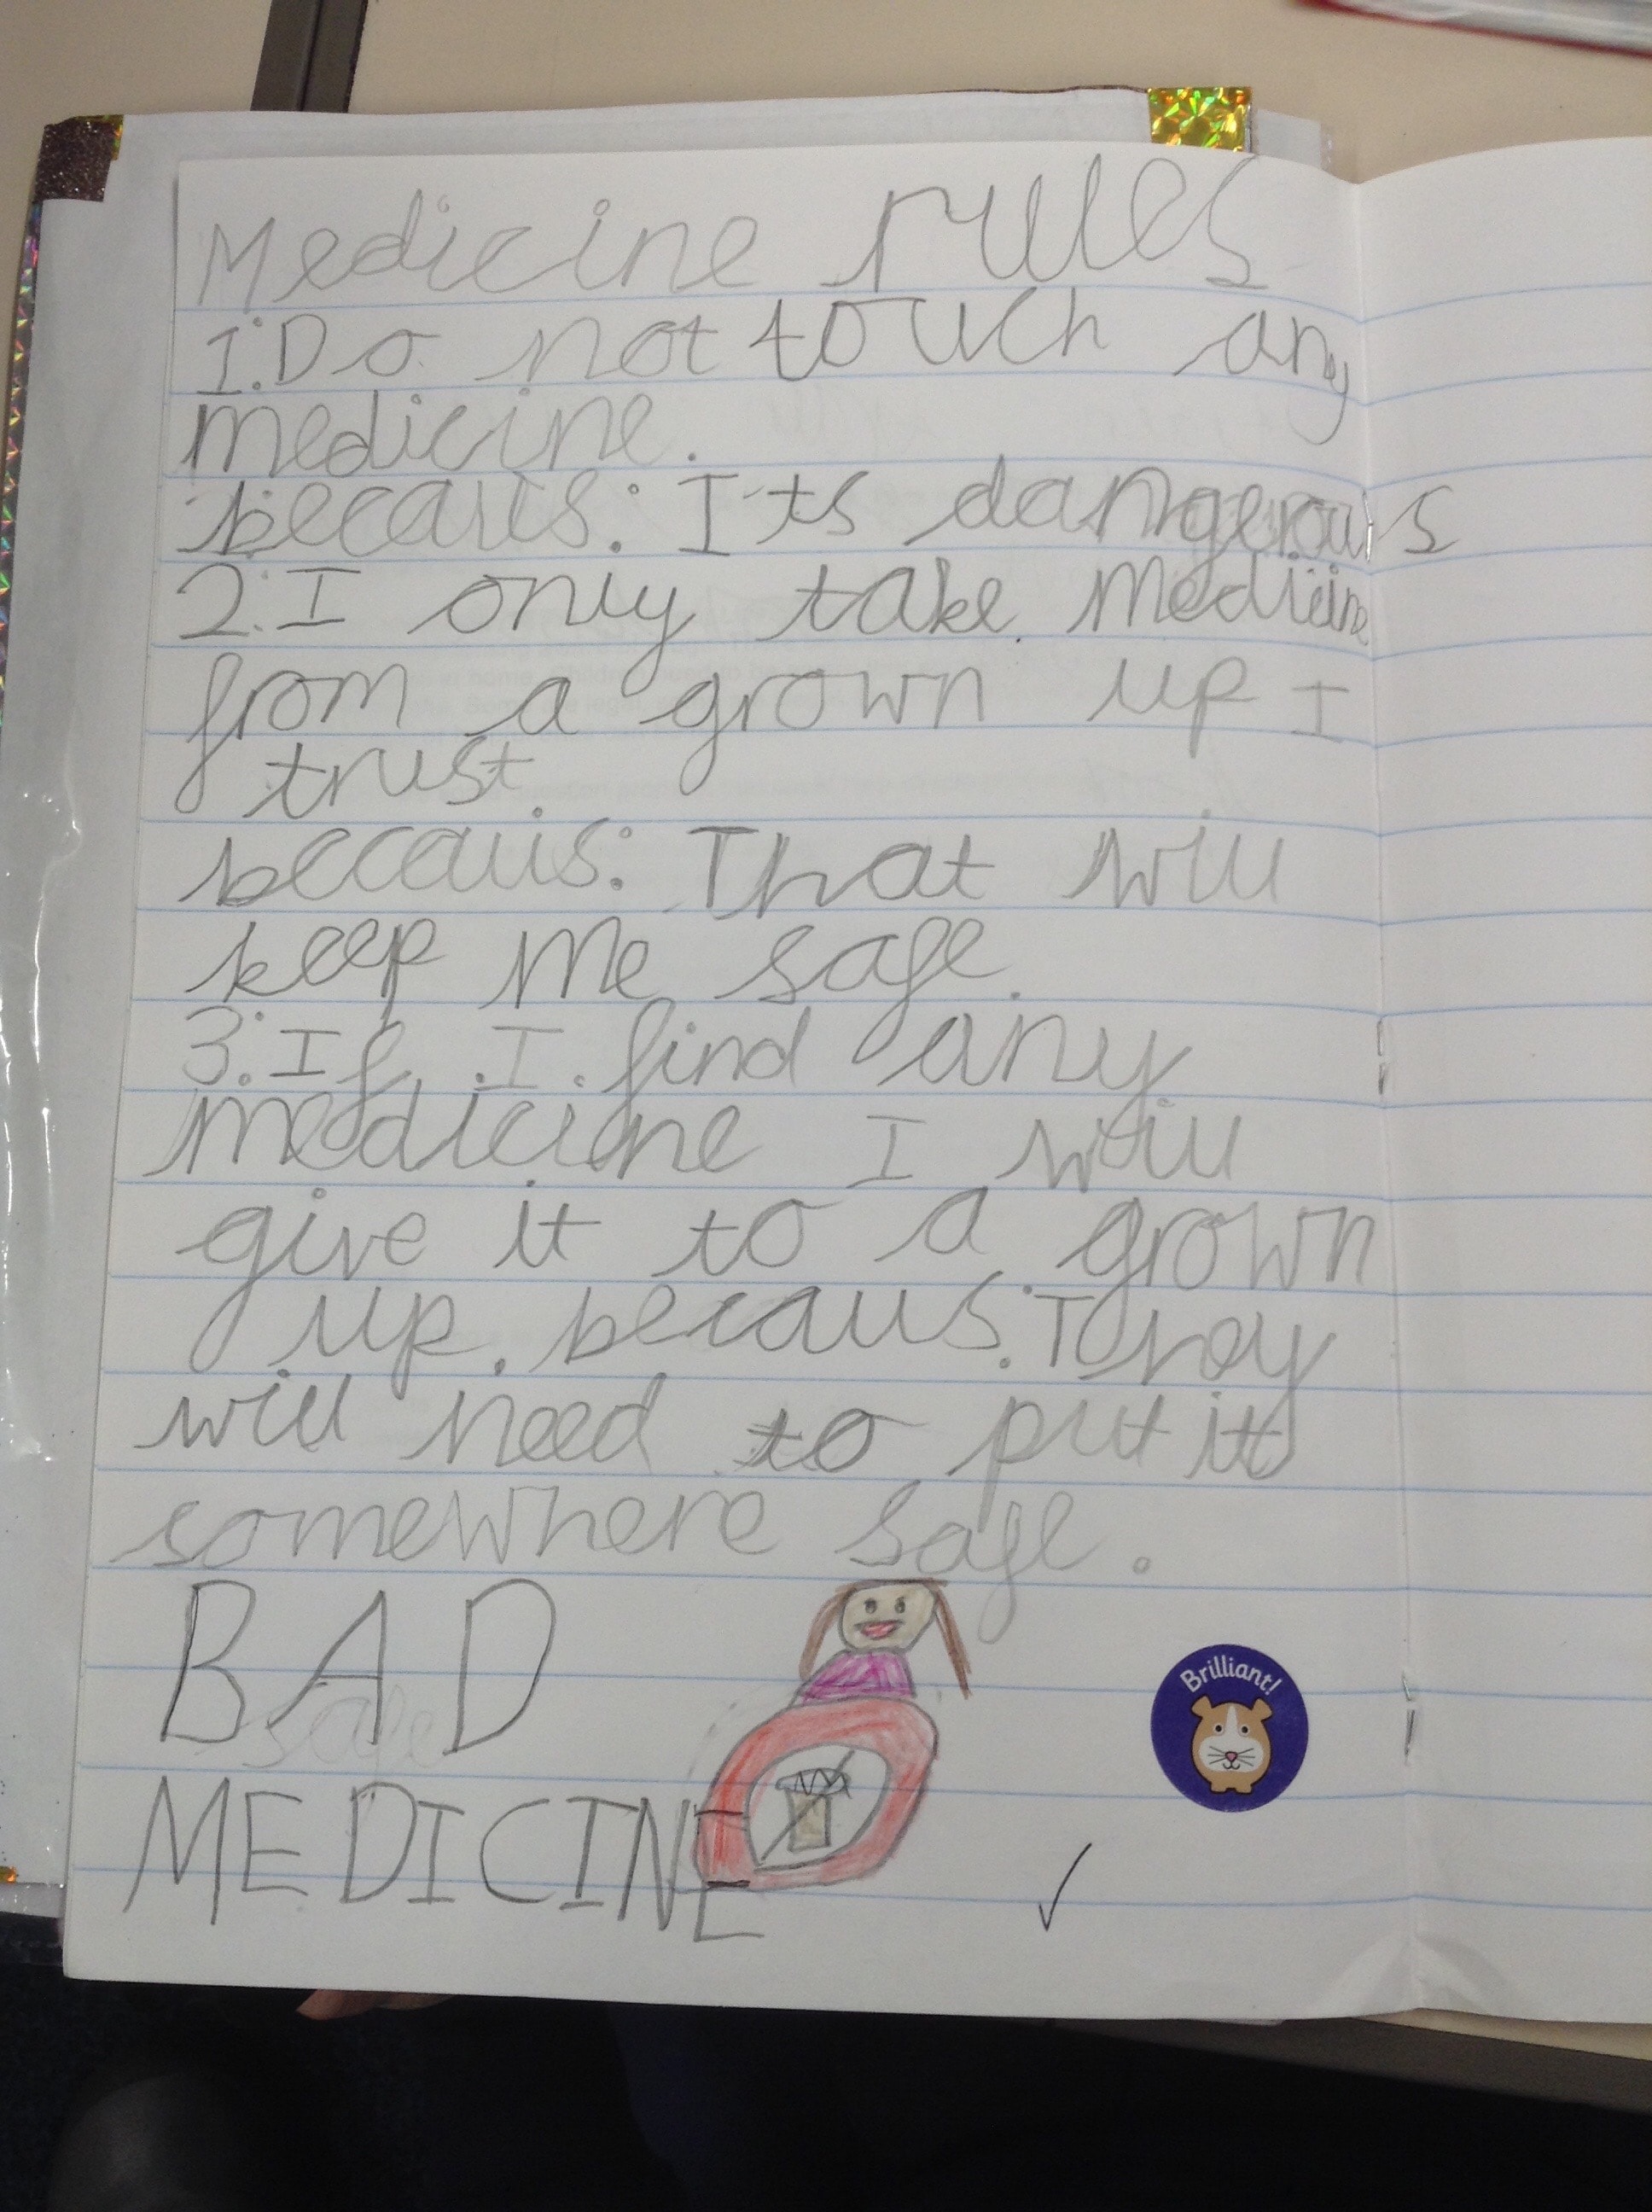 Medicine rules
1. Do not touch any
medicine.
becaus: Its dangerous
2. I only take medicine
from a grown up I
trust.
becaus: That will
keep me safe.
3. If I find any
medicine I will
give it to a grown
up. becaus: They
will need to put it
somewhere safe.
BAD
MEDICINE
Brilliant!